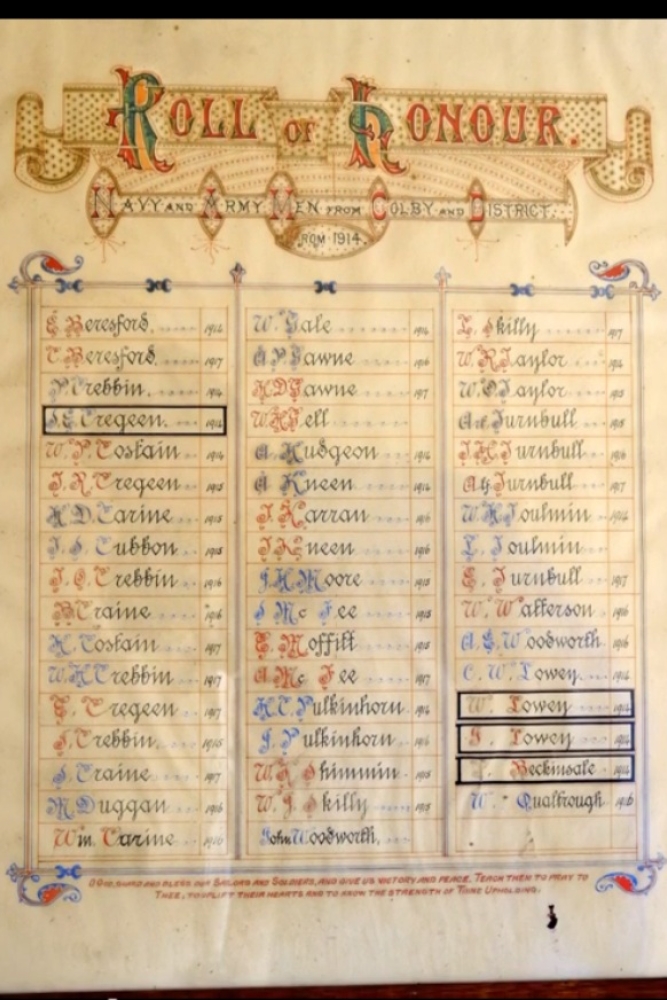 ROLL OF HONOUR.
NAVY AND ARMY MEN FROM COLBY AND DISTRICT.
FROM 1914.
E. Beresford. 1914
C. Beresford. 1917
P. Crebbin. 1914
J. E. Cregeen. 1914
W. P. Costain 1914
J. R. Cregeen 1915
H. D. Carine 1915
J. S. Cubbon 1915
J. C. Crebbin 1916
B Craine 1916
H. Costain 1917
W. H. Crebbin 1917
E. Cregeen 1917
J. Crebbin. 1915
J. Craine 1917
M. Duggan 1916
Wm. Carine 1916
W. Gale 1914
A P Gawne 1916
H D Gawne 1917
W H Gell
A. Hudgeon 1914
A Kneen 1914
J. Karran 1916
J. Kneen 1916
J. H. Moore 1915
J Mc Fee 1915
E. Moffitt 1915
A Mc Fee 1917
H. C. Pulkinhorn 1914
J. Pulkinhorn 1914
W. H. Shimmin 1915
W. J. Skilly 1915
John Woodworth.
L. Skilly 1917
W. R. Taylor 1914
W. C. Taylor 1915
Turnbull 1915
J. H. Turnbull 1916
Turnbull 1917
W H Toulmin 1914
L. Toulmin
E. Turnbull 1917
W. Watterson 1916
A. E. Woodworth 1916
C. W. Lowey 1914
W. Lowey 1914
J. Lowey 1914
Beckinsale 1914
W. Qualtrough 1916
O GOD, GUARD AND BLESS OUR SAILORS AND SOLDIERS, AND GIVE US VICTORY AND PEACE. TEACH THEM TO PRAY TO
THEE, TO UPLIFT THEIR HEARTS AND TO KNOW THE STRENGTH OF THINE UPHOLDING.